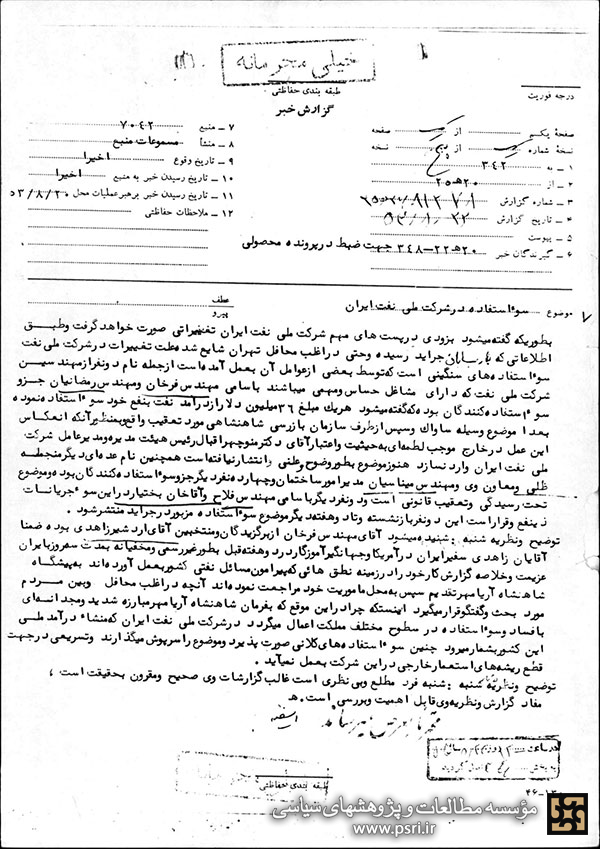 خیلی محرمانه
طبقه بندی حفاظتی
گزارش خبر
درجه فوریت
صفحهٔ یکم از یک صفحه
نسخهٔ شماره یک از پنج نسخه
۱ ـ به ۳۴۲
۲ ـ از ۲۰هـ۲۵
۳ ـ شماره گزارش
۴ ـ تاریخ گزارش
۵ ـ پیوست
۶ ـ گیرندگان خبر ۲۰هـ۲۲ـ۳۴۸ جهت ضبط در پرونده محصولی
۷ ـ منبع ۷۰۴۲
۸ ـ منشأ مسموعات منبع
۹ ـ تاریخ وقوع اخیرا
۱۰ ـ تاریخ رسیدن خبر به منبع اخیرا
۱۱ ـ تاریخ رسیدن خبر برهبر عملیات محل ۵۳/۸/۲۰
۱۲ ـ ملاحظات حفاظتی
موضوع سوءاستفاده در شرکت ملی نفت ایران
عطف
پیرو
بطوریکه گفته میشود بزودی در پست های مهم شرکت ملی نفت ایران تغییراتی صورت خواهد گرفت و طبق
اطلاعاتی که جراید رسیده و حتی در اغلب محافل تهران شایع شده علت تغییرات در شرکت ملی نفت
سوءاستفاده های سنگینی است که توسط بعضی از عوامل آن بعمل آمده است از جمله نام دو نفر از مهندسین
شرکت ملی نفت که دارای مشاغل حساس و مهمی میباشند باسامی مهندس فرخان و مهندس رمضانیان جزو
سوءاستفاده کنندگان بوده که گفته میشود هریك مبلغ ۳۶ میلیون دلار از درآمد نفت بنفع خود سوءاستفاده نموده
بعدا موضوع وسیله ساواك و سپس از طرف سازمان بازرسی شاهنشاهی مورد تعقیب واقع و بمنظور آنکه انعکاس
این عمل در خارج موجب لطمه ای به حیثیت و اعتبار آقای دکتر منوچهر اقبال رئیس هیئت مدیره و مدیر عامل شرکت
ملی نفت ایران وارد نسازد هنوز موضوع بطور وضوح و علنی انتشار نیافته است همچنین نام عده ای دیگر منجمله
ظلی و معاون وی ومهندس میناسیان مدیر امور ساختمان وچهارده نفر دیگر جزو سوءاستفاده کنندگان بوده و موضوع
تحت رسیدگی و تعقیب قانونی است و دو نفر دیگر باسامی مهندس فلاح و آقاخان بختیار در این سوء جریانات
ذینفع و قرار است این دو نفر بازنشسته و تا دو هفته دیگر موضوع سوءاستفاده مزبور در جراید منتشر شود .
توضیح و نظریه شنبه : شنیده میشود آقای مهندس فرخان از برگزیدگان و منتخبین آقای اردشیر زاهدی بوده ضمنا
آقایان زاهدی سفیر ایران در آمریکا و جهانگیر آموزگار در دو هفته قبل بطور غیر رسمی و مخفیانه بمدت سه روز بایران
عزیمت و خلاصه گزارش کار خود را در زمینه نطق هائی که پیرامون مسائل نفتی کشور بعمل آورده اند به پیشگاه
شاهنشاه آریامهر تقدیم سپس به محل ماموریت خود مراجعت نموده اند آنچه در اغلب محافل و بین مردم
مورد بحث و گفتگو قرار میگیرد اینستکه چرا در این موقع که بفرمان شاهنشاه آریامهر مبارزه شدید و مجدانه ای
با فساد و سوءاستفاده در سطوح مختلف مملکت اعمال میگردد در شرکت ملی نفت ایران که منشاء درآمد ملی
این کشور بشمار میرود چنین سوءاستفاده های کلانی صورت پذیرد و موضوع را سرپوش میگذارند و تسریعی در جهت
قطع ریشه های استعمار خارجی در این شرکت بعمل نمیآید .
توضیح و نظریه شنبه : شنبه فرد مطلع و بی نظری است غالب گزارشات وی صحیح و مقرون بحقیقت است ،
مفاد گزارش و نظریه وی قابل اهمیت و بررسی است . هـ
طبقه بندی حفاظتی
مؤسسه مطالعات و پژوهشهای سیاسی
www.psri.ir